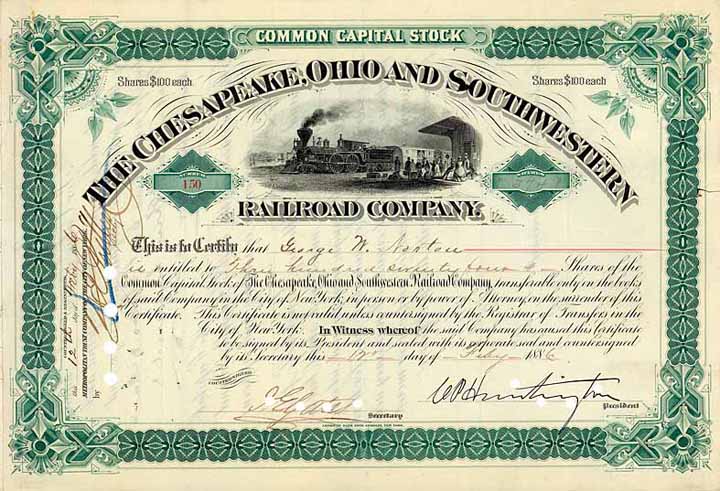 COMMON CAPITAL STOCK
Shares $100 each
Shares $100 each
THE CHESAPEAKE, OHIO AND SOUTHWESTERN
NUMBER
150
RAILROAD COMPANY.
This is to Certify that George W. Norton
is entitled to Three hundred seventy four Shares of the
Common Capital Stock of The Chesapeake, Ohio and Southwestern Railroad Company, transferable only on the books
of said Company in the City of New York, in person or by power of Attorney, on the surrender of this
Certificate. This Certificate is not valid unless countersigned by the Registrar of Transfers in the
City of New York. In Witness whereof the said Company has caused this Certificate
to be signed by its President and sealed with its corporate seal and countersigned
by its Secretary this 12th day of Feby 1886
COUNTERSIGNED
Secretary
C P Huntington
President
this 12th
METROPOLITAN TRUST COMPANY
by